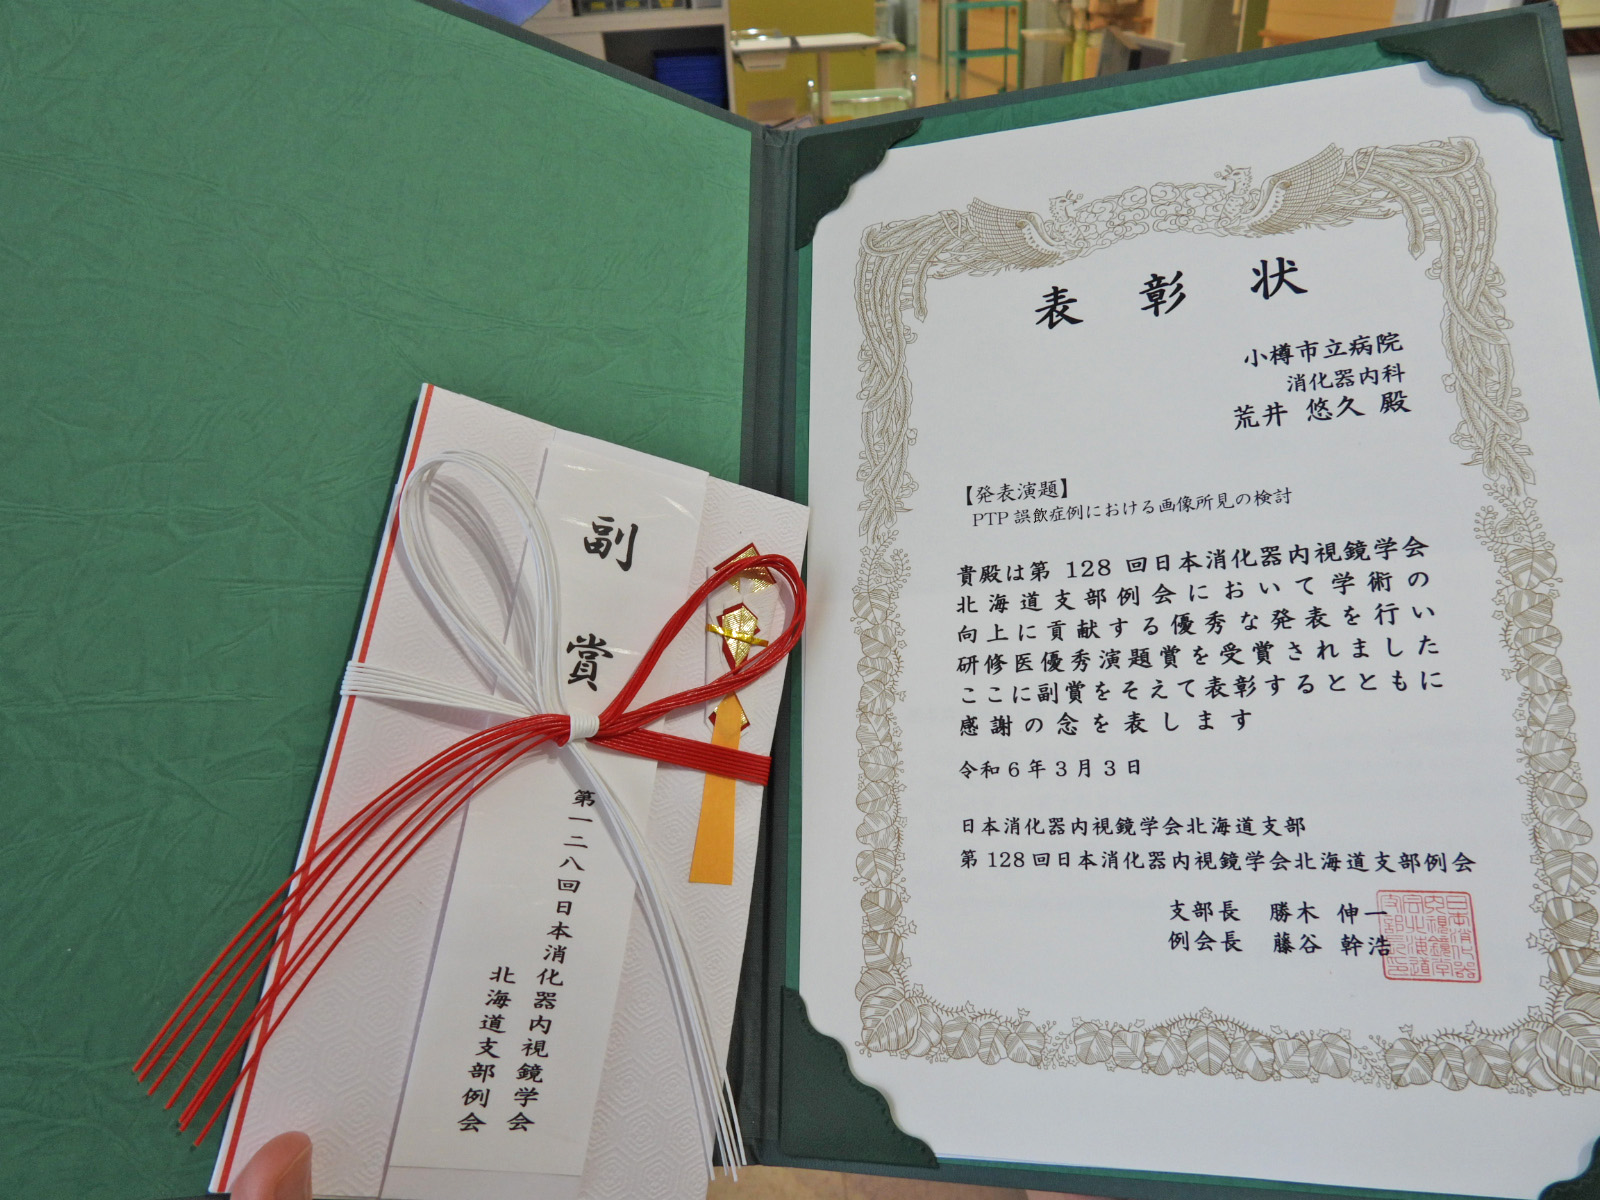 表彰状
小樽市立病院
消化器内科
荒井 悠久 殿
【発表演題】
PTP 誤飲症例における画像所見の検討
貴殿は第 128 回日本消化器内視鏡学会
北海道支部例会において学術の
向上に貢献する優秀な発表を行い
研修医優秀演題賞を受賞されました
ここに副賞をそえて表彰するとともに
感謝の念を表します
令和6年3月3日
日本消化器内視鏡学会北海道支部
第 128 回日本消化器内視鏡学会北海道支部例会
支部長 勝木 伸一
例会長 藤谷 幹浩
副賞
第一二八回日本消化器内視鏡学会
北海道支部例会